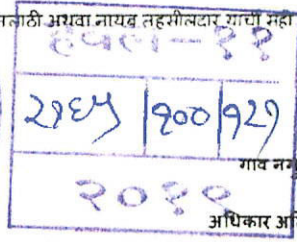 तलाठी अथवा नायब तहसीलदार यांची सही
हवल - ११
२७६५ | १०० | १२१
गाव नमु
२०१९
अधिकार अ